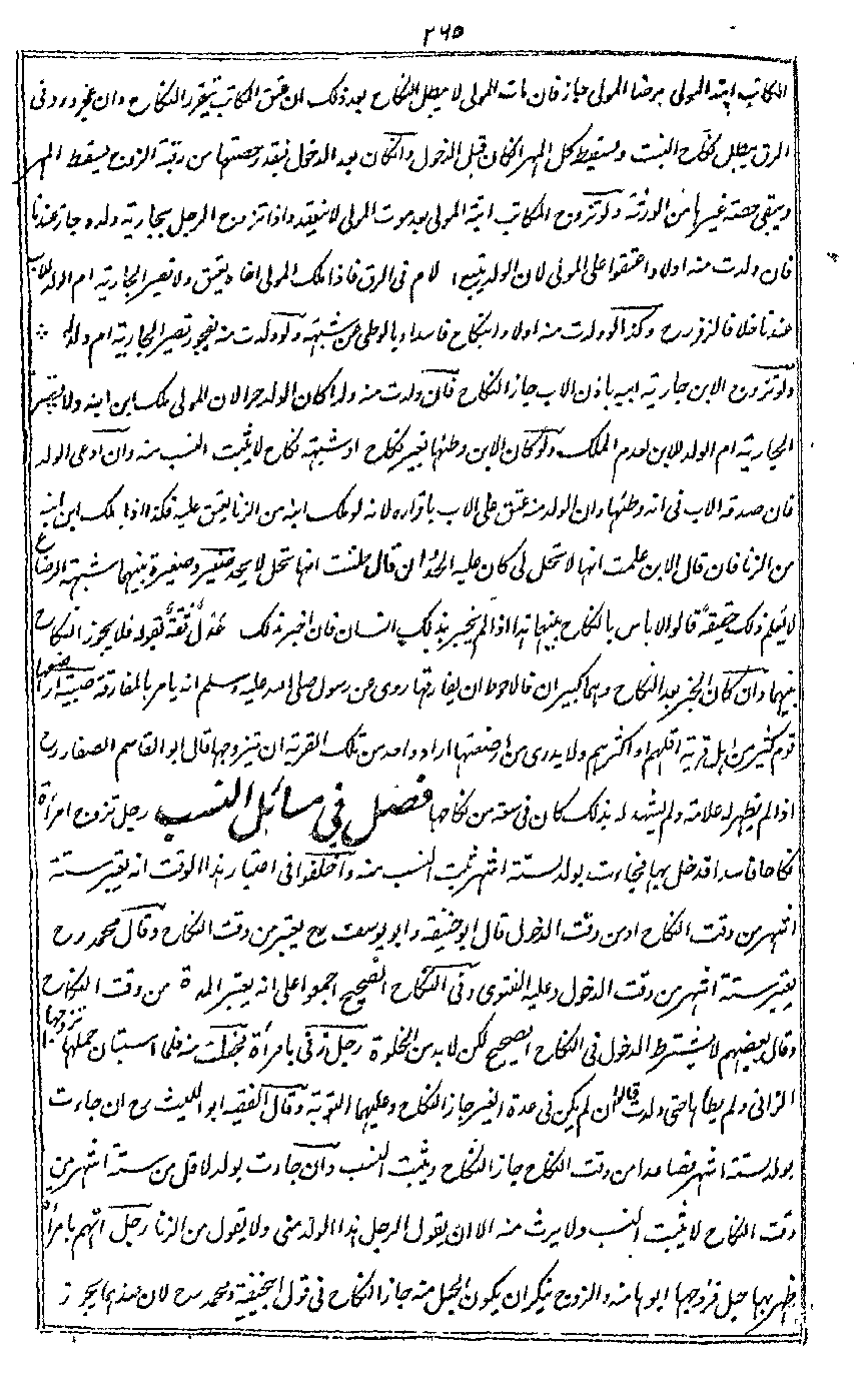 ٢٦٥
المكاتب ابنة المولى برضا المولى جاز فان مات المولى لا يبطل النكاح بعد ذلك ان عتق المكاتب تقرر النكاح وان عجز ورد فى
الرق يبطل نكاح البنت ويسقط كل المهر ان كان قبل الدخول وان كان بعد الدخول فبقدر حصتها من رقبة الزوج يسقط المهر
ويبقى حصة غيرها من الورثة ولو تزوج المكاتب ابنة المولى بعد موت المولى لا ينعقد واذا تزوج الرجل بجارية ولده جاز عندنا
فان ولدت منه اولادا عتقوا على المولى لان الولد يتبع الام فى الرق فاذا ملك المولى اخاه يعتق ولا تصير الجارية ام الولد للاب
عندنا خلافا لزفر رح وكذا لو ولدت منه اولادا بنكاح فاسد او بالوطى عن شبهة ولو ولدت منه بفجور تصير الجارية ام ولد له
ولو تزوج الابن جارية ابيه باذن الاب جاز النكاح فان ولدت منه ولدا كان الولد حرا لان المولى ملك ابن ابنه ولا تصير
الجارية ام الولد للابن لعدم الملك ولو كان الابن وطئها بغير نكاح او شبهة نكاح لا يثبت النسب منه وان ادعى الولد
فان صدقه الاب فى انه وطئها وان الولد منه عتق على الاب باقراره لانه لو ملك ابنه من الزنا يعتق عليه فكذا اذا ملك ابن ابنه
من الزنا فان قال الابن علمت انها لا تحل لى كان عليه الحد وان قال ظننت انها تحل لا يحد صغير وصغيرة بينهما شبهة الرضاع
لا يعلم ذلك حقيقة قالوا لا باس بالنكاح بينهما هذا اذا لم يخبر بذلك انسان فان اخبر بذلك عدل ثقة يقوله فلا يجوز النكاح
بينهما وان كان الخبر بعد النكاح وهما كبيران فالاحوط ان يفارقها روى عن رسول صلى الله عليه وسلم انه يامر بالمفارقة صبية ارضعها
قوم كثير من اهل قرية اقلهم او اكثرهم ولا يدرى من ارضعتها اراد واحد من تلك القرية ان يتزوجها قال ابو القاسم الصفار رح
اذا لم يظهر له علامة ولم يشهد له بذلك كان فى سعة من نكاحها فصل في مسائل النسب رجل تزوج امرأة
نكاحا فاسدا فدخل بها فجاءت بولد لستة اشهر ثبت النسب منه واختلفوا فى اعتبار هذا الوقت انه يعتبر ستة
اشهر من وقت النكاح او من وقت الدخول قال ابو حنيفة وابو يوسف رح يعتبر من وقت النكاح وقال محمد رح
يعتبر ستة اشهر من وقت الدخول وعليه الفتوى وفى النكاح الصحيح اجمعوا على انه يعتبر المدة من وقت النكاح
وقال بعضهم لا يشترط الدخول فى النكاح الصحيح لكن لا بد من الخلوة رجل زنى بامرأة فحبلت منه فلما استبان حملها تزوجها
الزانى ولم يطأها حتى ولدت قالوا ان لم يكن فى عدة الغير جاز النكاح وعليهما التوبة وقال الفقيه ابو الليث رح ان جاءت
بولد لستة اشهر فصاعدا من وقت النكاح جاز النكاح ويثبت النسب وان جاءت بولد لاقل من ستة اشهر من
وقت النكاح لا يثبت النسب ولا يرث منه الا ان يقول الرجل هذا الولد منى ولا يقول من الزنا رجل اتهم بامرأة
ظهر بها حبل فزوجها ابوها منه والزوج ينكر ان يكون الحبل منه جاز النكاح فى قول ابى حنيفة ومحمد رح لان عندهما يجوز